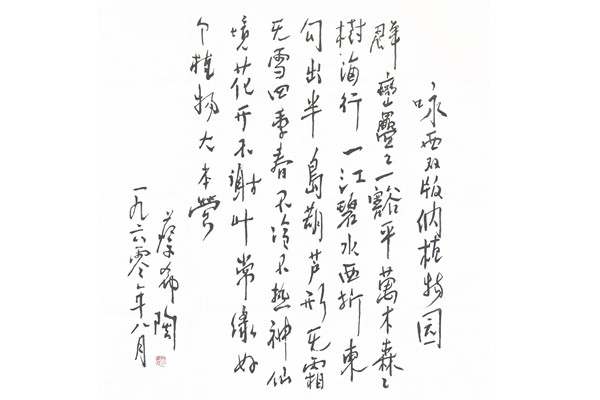 咏西双版纳植物园
群巒疊々一豁平萬木森々
樹海行一江碧水西折東
勾出半島葫芦形无霜
无雪四季春不冷不热神仙
境花开不謝叶常绿好
个植物大本營
蔡希陶
一九六零年八月